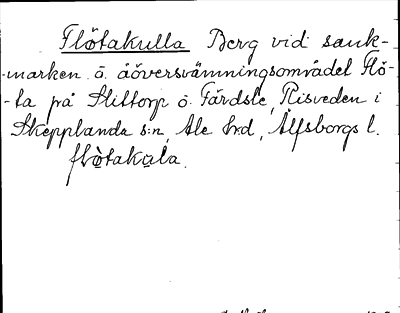 Flötakulla Berg vid sank-
-marken o. åöversvämningsområdet Flö-
-ta på Slittorp o. Färdsle, Risveden i
Skepplanda s:n, Ale hrd, Älfsborgs l.
flötakula.